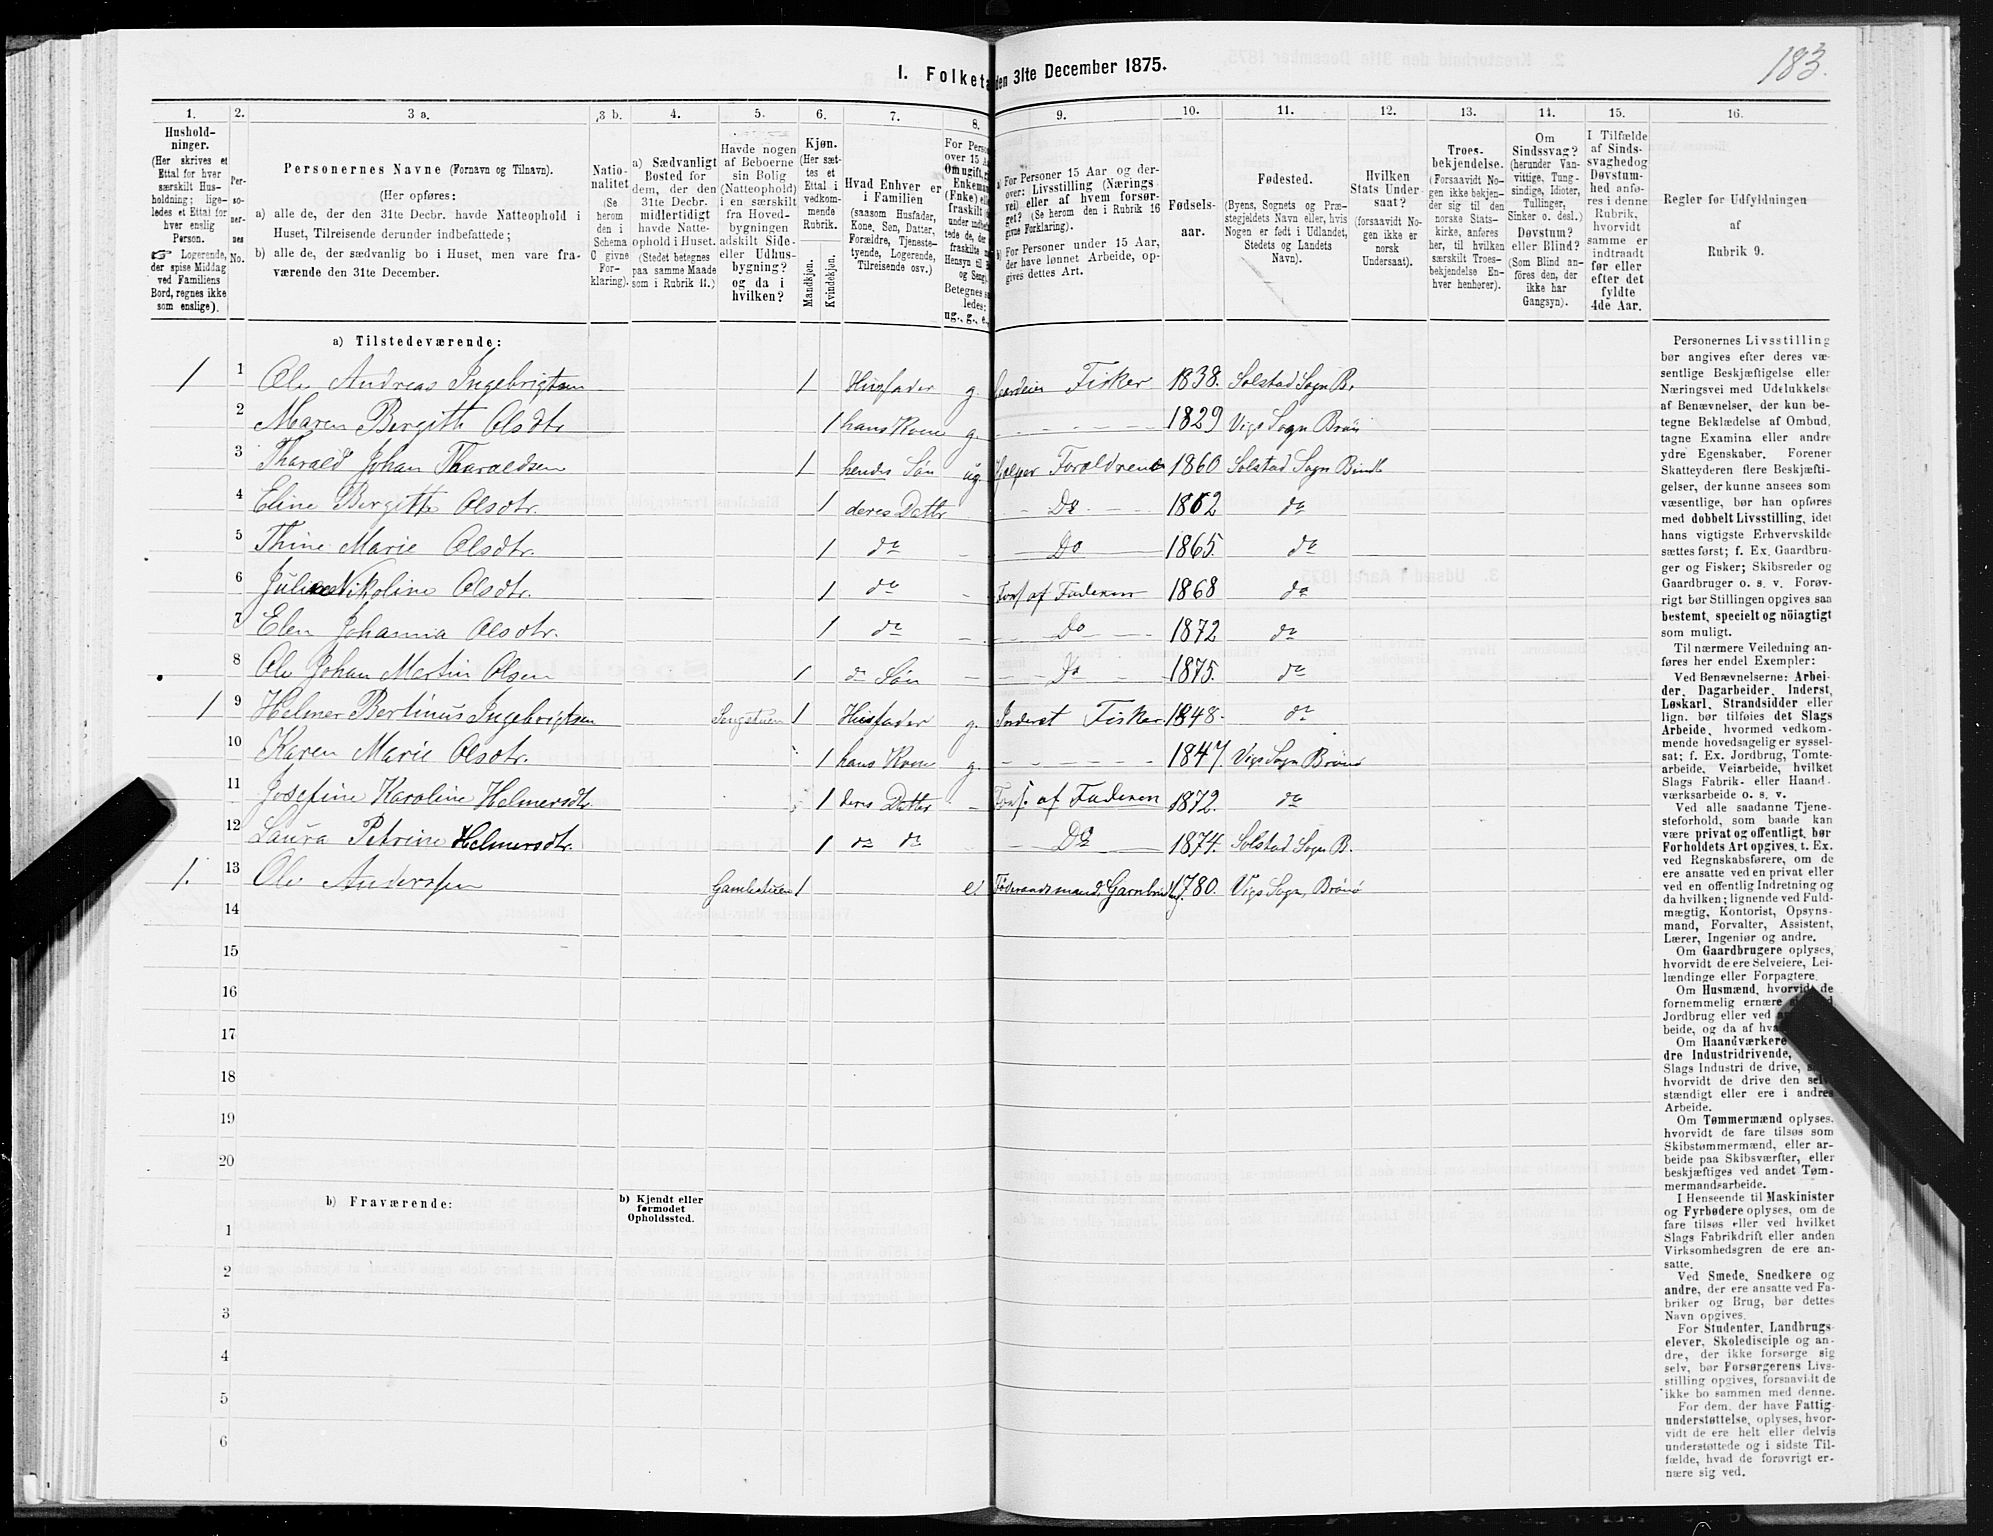 183.
I. Folketa
den 31te December 1875.
1. 2. 3 a. 3 b. 4. 5. 6. 7. 8. 9. 10. 11. 12. 13. 14. 15. 16.
Hushold-
ninger.
(Her skrives et
Ettal for hver
særskilt Hus-
holdning; lige-
ledes et Ettal for
hver enslig
Person.
☞ Logerende,
der spise Middag
ved Familiens
Bord, regnes ikke
som enslige).
Per-
so-
ner-
nes
No.
Personernes Navne (Fornavn og Tilnavn).
(Her opføres:
a) alle de, der den 31te Decbr. havde Natteophold i
Huset, Tilreisende derunder indbefattede;
b) alle de, der sædvanlig bo i Huset, men vare fra-
værende den 31te December.
Natio-
nalitet
(Se
herom
den i
Schema
C givne
For-
klaring).
a) Sædvanligt
Bosted for
dem, der den
31te Decbr.
midlertidigt
havde Natte-
ophold i Huset.
(Stedet betegnes
paa samme Maade
som i Rubrik 11.)
Havde nogen
af Beboerne
sin Bolig
(Natteophold)
i en særskilt
fra Hoved-
bygningen
adskilt Side-
eller Udhus-
bygning?
og da i
hvilken?
Kjøn.
(Her sæt-
tes et
Ettal i
vedkom-
mende
Rubrik.
Mandkjøn.
Kvindekjøn.
Hvad Enhver er
i Familien
(saasom Husfader,
Kone, Søn, Datter,
Forældre, Tjeneste-
tyende, Logerende,
Tilreisende osv.)
For Person
over 15 Aa
Om ugift, g
Enkeman
(Enke) ell
fraskilt
under indbef
tede de, de
fraskilte
Hensyn til B
og Seng).
Betegnes s
ledes:
ug., g., e.,
a) For Personer 15 Aar og der-
over: Livsstilling (Nærings-
vei) eller af hvem forsør-
get? (Se herom den i Rubrik 16
givne Forklaring).
b) For Personer under 15 Aar,
der have lønnet Arbeide, op-
gives dettes Art.
Fødsels-
aar.
Fødested.
(Byens, Sognets og Præ-
stegjeldets Navn eller, hvis
Nogen er født i Udlandet,
Stedets og Landets
Navn).
Hvilken
Stats Under-
saat?
(forsaavidt No-
gen ikke er
norsk
Undersaat).
Troes-
bekjendelse.
(Forsaavidt No-
gen ikke bekjen-
der sig til den
norske Stats-
kirke, anføres
her, til hvilken
særskilt Troes-
bekjendelse En-
hver henhører).
Om
Sindssvag?
(herunder Van-
vittige, Tung-
sindige, Idioter,
Tullinger,
Sinker o. desl.)
Døvstum?
eller Blind?
(Som Blind an-
føres den, der
ikke har
Gangsyn).
I Tilfælde
af Sinds-
svaghedog
Døvstum-
hed anfø-
res i denne
Rubrik,
hvorvidt
samme er
indtraadt
før eller
efter det
fyldte
4de Aar.
Regler for Udfyldningen
af
Rubrik 9.
a) Tilstedeværende:
1 1 Ole Andreas Ingebrigtsen 1 Husfader g. Gaardeier Fisker 1838. Solstad Sogn B.
2 Maren Bergitte Olsdtr 1 hans Kone g. 1829 Vigs Sogn Brønø
3 Tharald Johan Tharaldsen 1 hendes Søn ug. hjælper Forældrene 1860 Solstad Sogn Bindl
4 Eline Bergitte Olsdtr. 1 deres Dattr Do 1862 do
5 Thine Marie Olsdtr. 1 do Do 1865. do
6 Nikoline Olsdtr. 1 do Fors. af Faderen 1868 do
7 Elen Johanna Olsdtr. 1 do Do 1872 do
8 Ole Johan Martin Olsen 1 do Søn Do 1875. do
1 9 Helmer Bertinus Ingebrigtsen 1 Husfader g. Inderst Fisker 1848. do
10 Karen Marie Olsdtr. 1 hans Kone g. 1847. Vigs Sogn Brønø
11 Josefine Karoline Helmersdtr. 1 deres Dattr Fors. af Faderen 1872. do
12 Laura Petrine Helmersdtr. 1 do do Do 1874. Solstad Sogn B.
1. 13 Ole Anderssen 1 e Føderaadsmand, 1780. Vigs Sogn, Brønø
14
15
16
17
18
19
20
b) Fraværende:
b) Kjendt eller
formodet
Opholdssted.
1
2
3
4
5
6
Personernes Livsstilling
bør angives efter deres væ-
sentlige Beskjæftigelse eller
Næringsvei med Udelukkelse
af Benævnelser, der kun be-
tegne Beklædelse af Ombud,
tagne Examina eller andre
ydre Egenskaber. Forener
Skatteyderen flere Beskjæfti-
gelser, der kunne ansees som
væsentlige, bør han opføres
med dobbelt Livsstilling, idet
hans vigtigste Erhvervskilde
sættes først; f. Ex. Gaardbru-
ger og Fisker; Skibsreder og
Gaardbruger o. s. v. Forøv-
rigt bør Stillingen opgives saa
bestemt, specielt og nöiagtigt
som muligt.
Til nærmere Veiledning an-
føres her endel Exempler:
Ved Benævnelserne: Arbei-
der, Dagarbeider, Inderst,
Løskarl, Strandsidder eller
lign. bør tilføies det Slags
Arbeide, hvormed vedkom-
mende hovedsagelig er syssel-
sat; f. Ex. Jordbrug, Tomte-
arbeide, Veiarbeide, hvilket
Slags Fabrik- eller Haand-
værksarbeide o. s. v.
Ved alle saadanne Tjene-
steforhold, som baade kan
være privat og offentligt, bør
Forholdets Art opgives, t. Ex.
ved Regnskabsførere, om de
ere ansatte ved en privat eller
ved en offentlig Indretning og
da hvilken; lignende ved Fuld-
mægtig, Kontorist, Opsyns-
mand, Forvalter, Assistent,
Lærer, Ingeniør og andre.
Om Gaardbrugere oplyses,
hvorvidt de ere Selveiere, Lei-
lændinge eller Forpagtere.
Om Husmænd, hvorvidt de
fornemmelig ernære
Jordbrug eller ved
beide, og da af hva
Om Haandværkere
dre Industridrivende,
Slags Industri de drive,
hvorvidt de drive den selv-
stændigt eller ere i andres
Arbeide.
Om Tømmermænd oplyses,
hvorvidt de fare tilsøs som
Skibstømmermænd, eller ar-
beide paa Skibsværfter, eller
beskjæftiges ved andet Tøm-
mermandsarbeide.
I Henseende til Maskinister
og Fyrbødere oplyses, om de
fare tilsøs eller ved hvilket
Slags Fabrikdrift eller anden
Virksomhedsgren de ere an-
satte.
Ved Smede, Snedkere og
andre, der ere ansatte ved Fa-
briker og Brug, bør dettes
Navn opgives.
For Studenter, Landbrugs-
elever, Skoledisciple og an-
dre, der ikke forsørge sig
selv, bør Forsørgerens Livs-
stilling opgives, forsaavidt de
ikke bo sammen med denne.
For dem, der have Fattig-
understøttelse, oplyses, hvor-
vidt de ere helt eller delvis
understøttede og i sidste Til-
fælde, hvad de forøvrigt er-
nære sig ved.